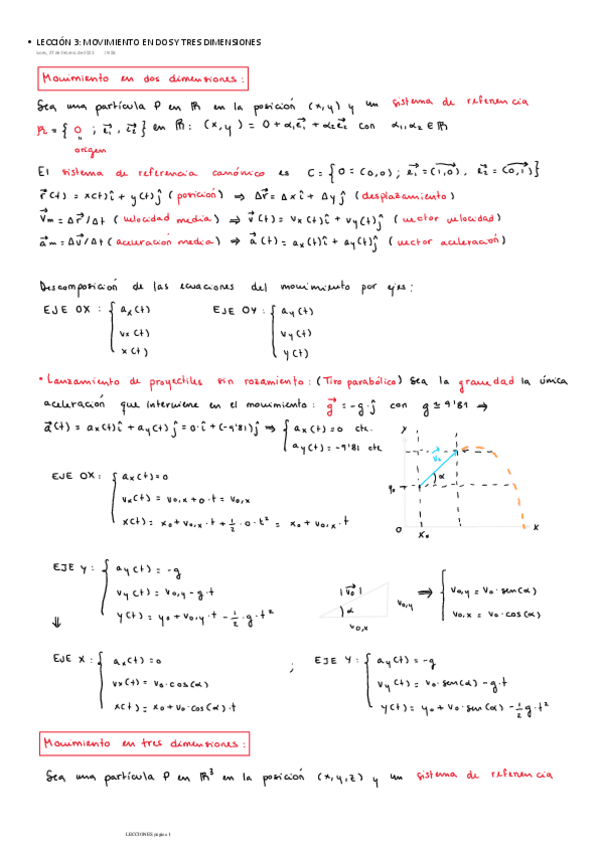 • LECCIÓN 3: MOVIMIENTO EN DOS Y TRES DIMENSIONES
Movimiento en dos dimensiones:
Sea una partícula P en ℝ en la posición (x,y) y un sistema de referencia
R = { O ; e⃗₁ , e⃗₂ } en ℝ : (x,y) = O + α₁e⃗₁ + α₂e⃗₂ con α₁,α₂ ∈ ℝ
origen
El sistema de referencia canónico es C = { O = (0,0) ; e⃗₁ = (1,0) , e⃗₂ = (0,1) }
r⃗(t) = x(t)î + y(t)ĵ (posición) ⇒ Δr⃗ = Δxî + Δyĵ (desplazamiento)
v⃗m = Δr⃗/Δt (velocidad media) ⇒ v⃗(t) = vx(t)î + vy(t)ĵ (vector velocidad)
a⃗m = Δv⃗/Δt (aceleración media) ⇒ a⃗(t) = ax(t)î + ay(t)ĵ (vector aceleración)
Descomposición de las ecuaciones del movimiento por ejes:
EJE OX : { ax(t) EJE OY : { ay(t)
vx(t) vy(t)
x(t) y(t)
• Lanzamiento de proyectiles sin rozamiento: (Tiro parabólico) Sea la gravedad la única
aceleración que interviene en el movimiento: g⃗ = -g·ĵ con g ≃ 9'81 ⇒
a⃗(t) = ax(t)î + ay(t)ĵ = 0·î + (-9'81)ĵ ⇒ { ax(t) = 0 cte.
ay(t) = -9'81 cte
y
v⃗₀
α
y₀
0
x₀
x
EJE OX: { ax(t) = 0
vx(t) = v₀,x + 0·t = v₀,x
x(t) = x₀ + v₀,x·t + ½·0·t² = x₀ + v₀,x·t
EJE Y : { ay(t) = -g
vy(t) = v₀,y - g·t
y(t) = y₀ + v₀,y·t - ½·g·t²
⇓
|v⃗₀|
α
v₀,y
v₀,x
⇒ { v₀,y = v₀·sen(α)
v₀,x = v₀·cos(α)
EJE X : { ax(t) = 0 ; EJE Y : { ay(t) = -g
vx(t) = v₀·cos(α) vy(t) = v₀·sen(α) - g·t
x(t) = x₀ + v₀·cos(α)·t y(t) = y₀ + v₀·sen(α) - ½g·t²
Movimiento en tres dimensiones:
Sea una partícula P en ℝ³ en la posición (x,y,z) y un sistema de referencia
LECCIONES página 1